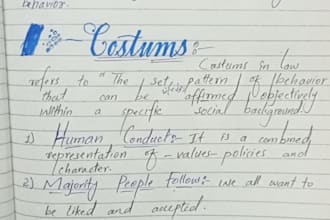 behavior.
Costums :-
Costums in law
refers to "The set pattern of behavior
that can be affirmed objectively
within a specific social background.
1) Human Conduct:- It is a combined
representation of - values - policies and
character.
2) Majority People follow:- we all want to
be liked and accepted.